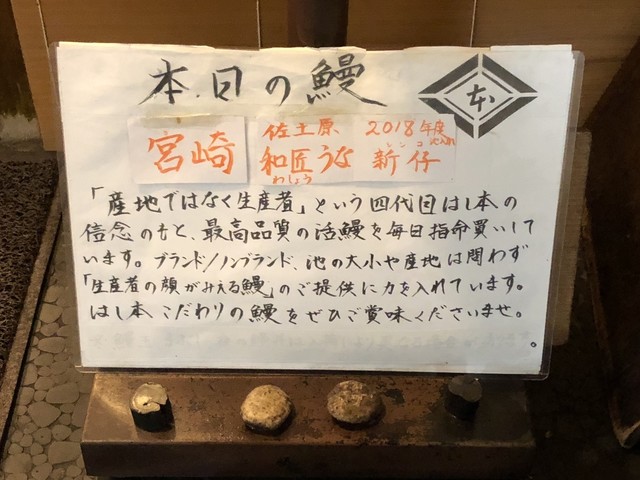 本日の鰻
本
宮崎
佐土原
和匠うな
わしょう
2018年度
新仔
シンコ
「産地ではなく生産者」という四代目はし本の
信念のもと、最高品質の活鰻を毎日指命買いして
います。ブランド/ノンブランド、池の大小や産地は問わず
「生産者の顔がみえる鰻」のご提供に力を入れています。
はし本こだわりの鰻をぜひご賞味くださいませ。